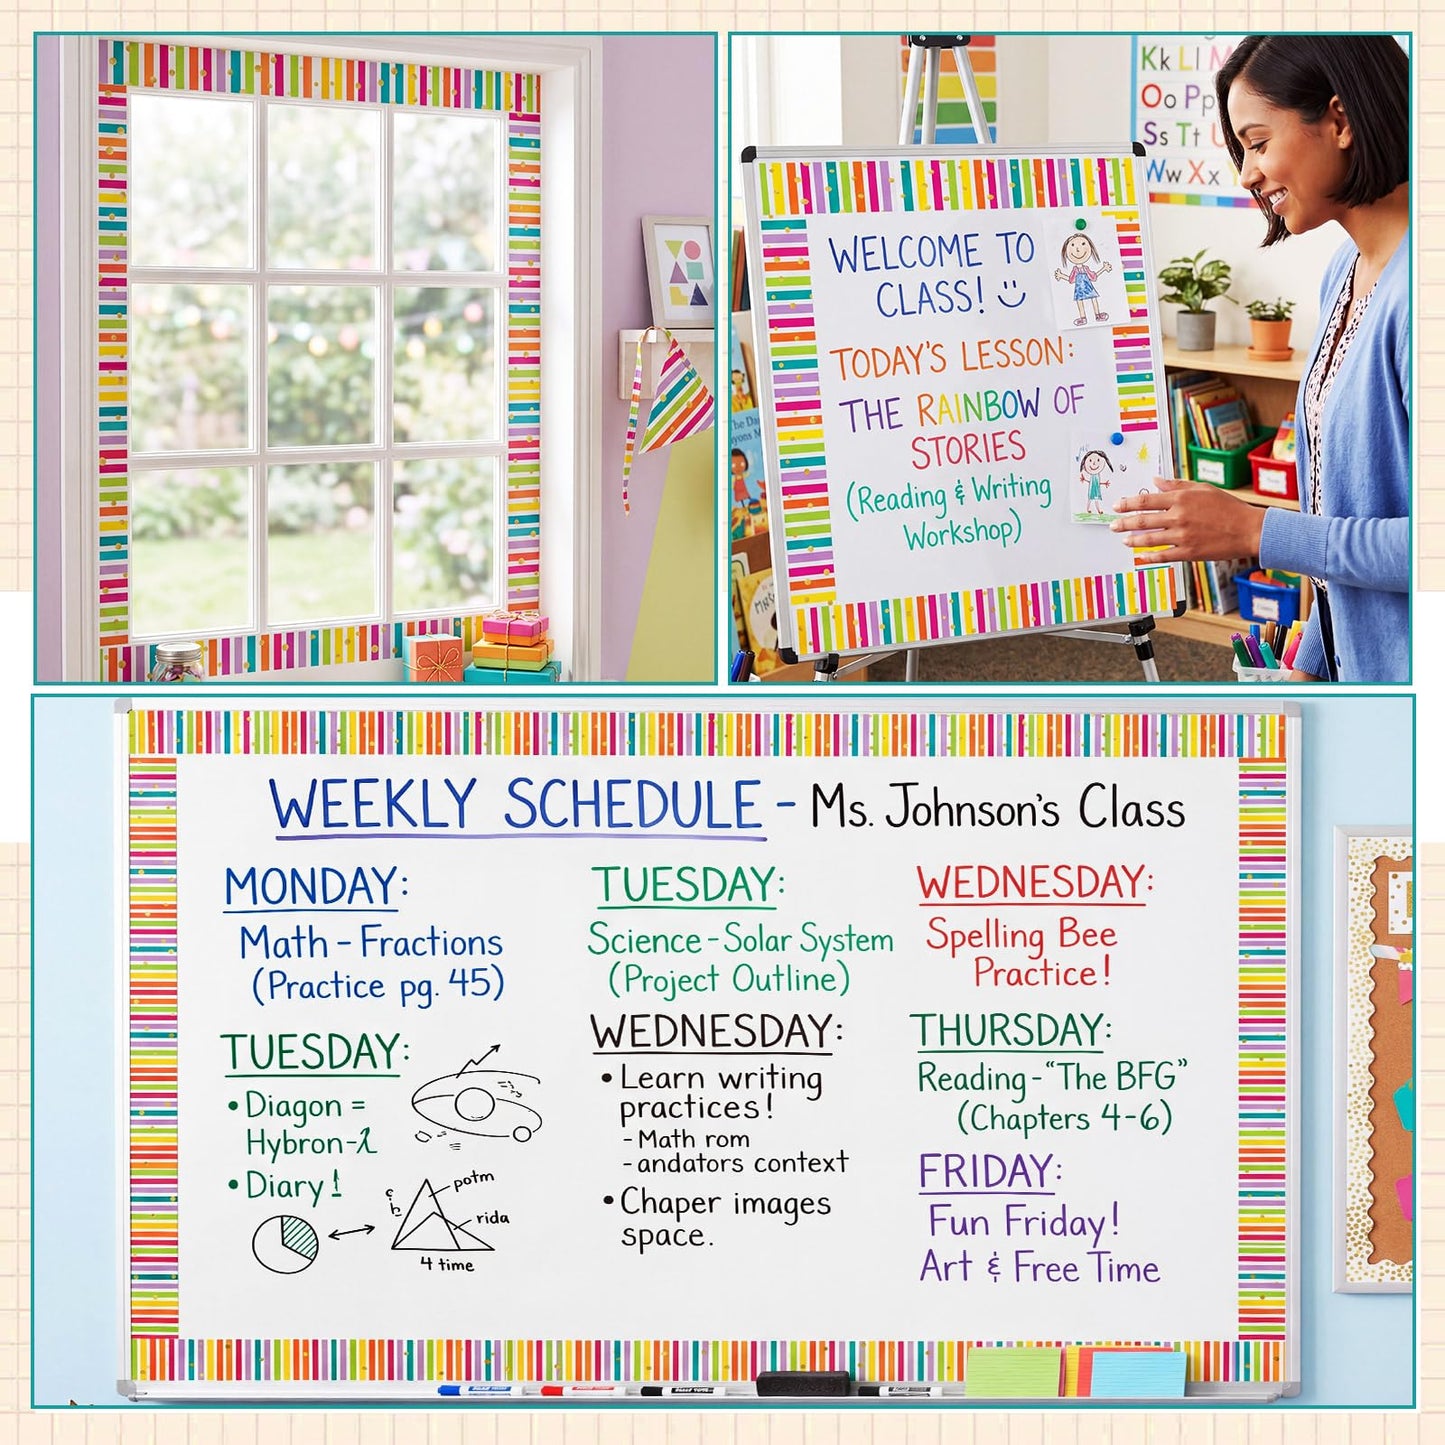 Kk Ll M
Oo Pp
Ss Tt U
Ww Xx
WELCOME TO
CLASS!
TODAY'S LESSON:
THE RAINBOW OF
STORIES
(Reading & Writing
Workshop)
WEEKLY SCHEDULE - Ms. Johnson's Class
MONDAY:
Math - Fractions
(Practice pg. 45)
TUESDAY:
Science - Solar System
(Project Outline)
WEDNESDAY:
Spelling Bee
Practice!
TUESDAY:
• Diagon =
Hybron-λ
• Diary!
potm
rida
4 time
WEDNESDAY:
• Learn writing
practices!
- Math rom
- andators context
• Chaper images
space.
THURSDAY:
Reading - "The BFG"
(Chapters 4-6)
FRIDAY:
Fun Friday!
Art & Free Time